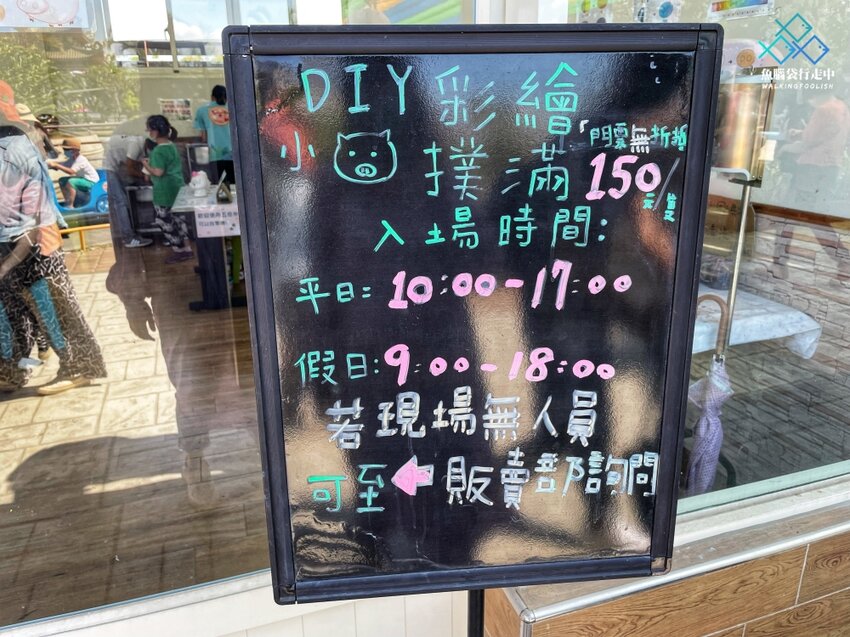 魚腦袋行走中
WALKINGFOOLISH
DIY彩繪
小撲滿
門票無折抵
150元/隻
入場時間:
平日: 10:00-17:00
假日:9:00-18:00
若現場無人員
可至 販賣部詢問